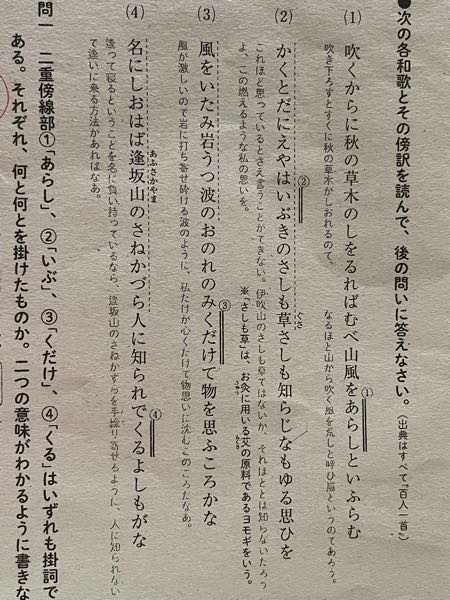 ●次の各和歌とその傍訳を読んで、後の問いに答えなさい。（出典はすべて『百人一首』）
(1) 吹くからに秋の草木のしをるればむべ山風をあらしといふらむ
①
吹き下ろすとすぐに秋の草木がしおれるので、なるほど山から吹く風を荒しと呼び嵐というのであろう。
(2) かくとだにえやはいぶきのさしも草さしも知らじなもゆる思ひを
②
ぐさ
これほど思っているとさえ言うことができない。伊吹山のさしも草ではないが、それほどとは知らないだろうよ、この燃えるような私の思いを。
※「さしも草」は、お灸に用いる艾の原料であるヨモギをいう。
(3) 風をいたみ岩うつ波のおのれのみくだけて物を思ふころかな
③
風が激しいので岩に打ち寄せ砕ける波のように、私だけが心くだけて物思いに沈むこのごろだなあ。
(4) 名にしおはば逢坂山のさねかづら人に知られでくるよしもがな
あふさかやま
④
逢って寝るということを名に負い持っているなら、逢坂山のさねかずらを手繰り寄せるように、人に知られないで逢いに来る方法があればなあ。
問一 二重傍線部①「あらし」、②「いぶ」、③「くだけ」、④「くる」はいずれも掛詞で
ある。それぞれ、何と何とを掛けたものか。二つの意味がわかるように書きな